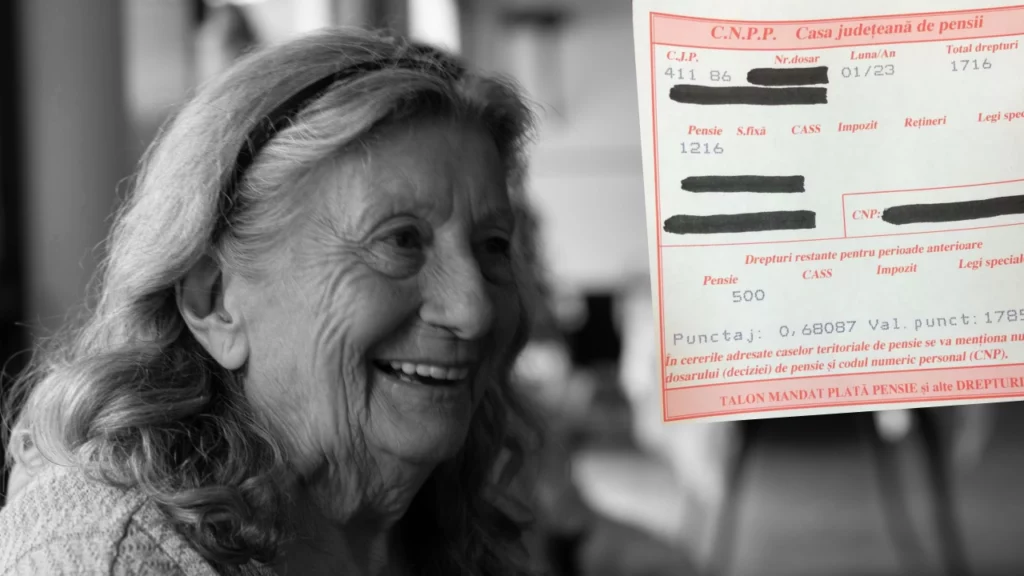 C.N.P.P. Casa județeană de pensii
C.J.P. Nr.dosar Luna/An Total drepturi
411 86 01/23 1716
Pensie S.fixă CASS Impozit Rețineri Legi spec
1216
CNP:
Drepturi restante pentru perioade anterioare
Pensie CASS Impozit Legi special
500
Punctaj: 0,68087 Val.punct:1785
În cererile adresate caselor teritoriale de pensie se va menționa nu
dosarului (deciziei) de pensie și codul numeric personal (CNP).
TALON MANDAT PLATĂ PENSIE și alte DREPTURI